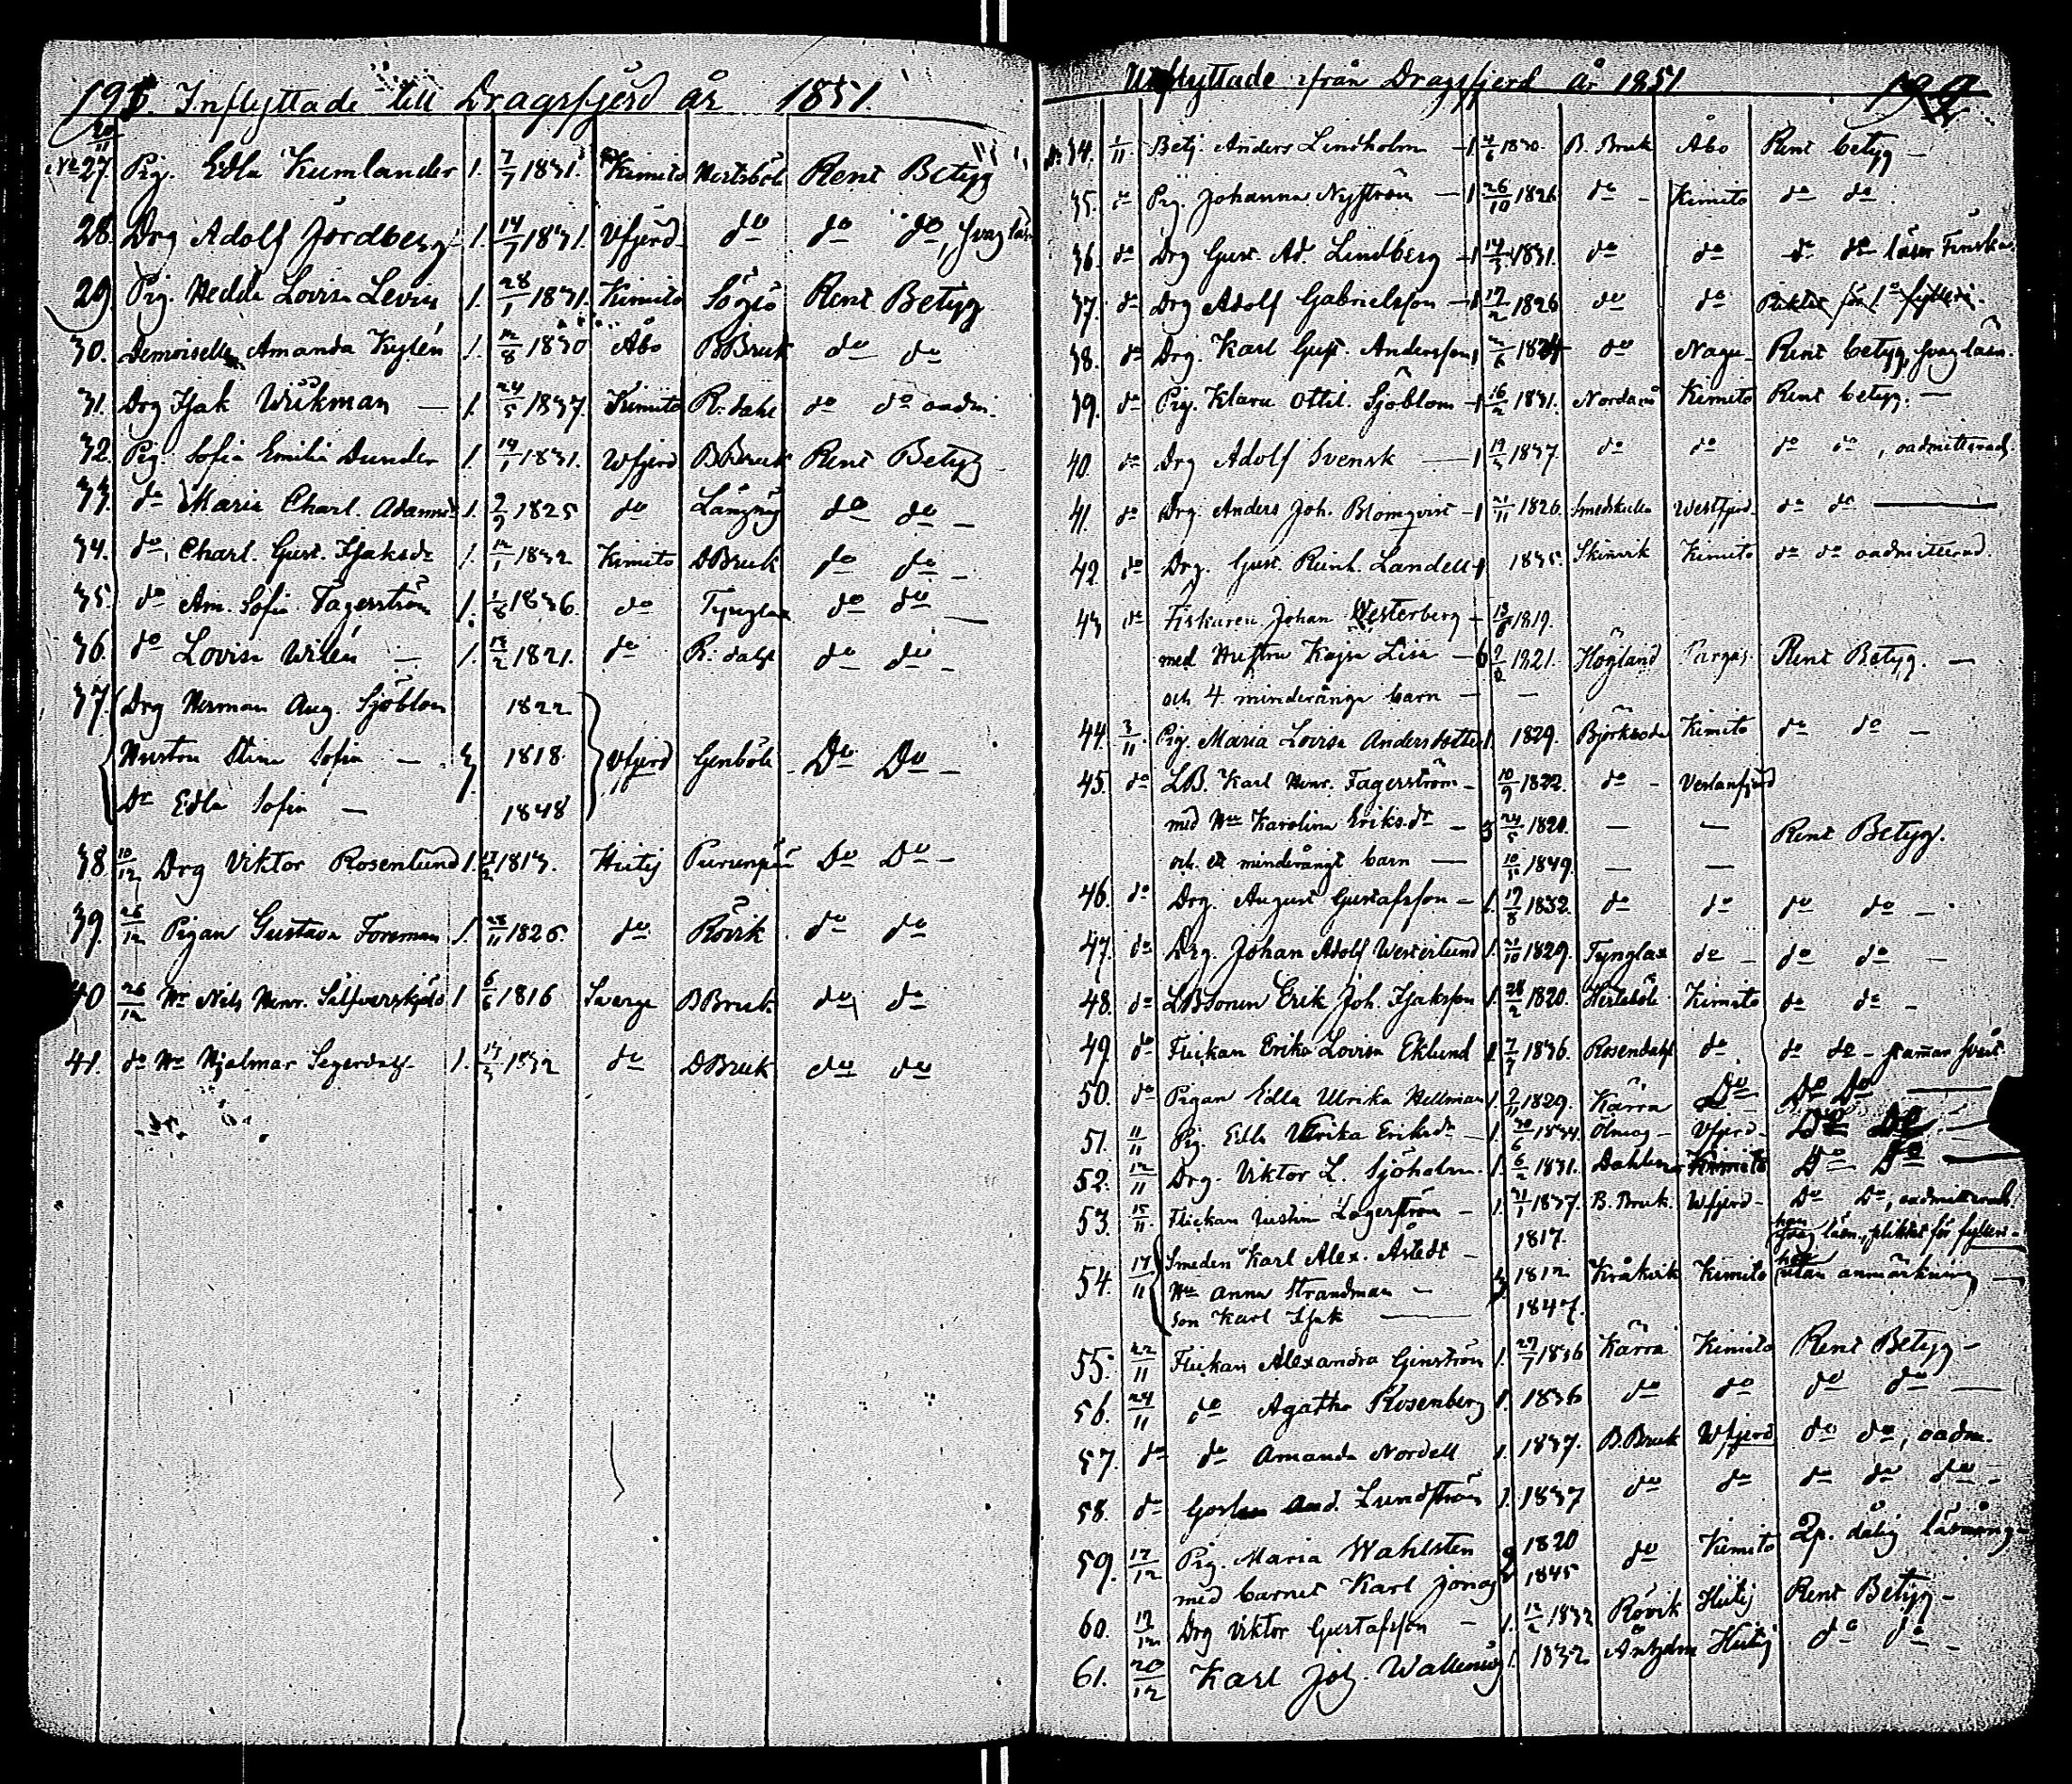 Inflyttade till Dragsfjerd år 1851.
20/11
No 27. Pig. Edla Kumlander 1. 7/7 1831. Kimito Hertsböle Rent Betyg
28. Drg Adolf Jördberg 1. 14/7 1831. Vfjerd do do do, svag läsn
29. Pig. Hedda Lovisa Levin 1. 28/1 1831. Kimito Söglö Rent Betyg
30. Demoiselle Amanda Kylén 1. 12/8 1830 Åbo BBruk do do
31. Drg Isak Wikman — 1. 24/5 1837 Kimito R:dahl do do oadm.
32. Pig. Sofia Emilia Dunder 1. 14/1 1831. Wfjerd BBruk Rent Betyg
33. do Maria Charl. Adamsd 1. 2/9 1825 do Långnäs do do —
34. do, Charl. Gust. Isaksdr 1. 12/1 1832 Kimito DBruk do do —
35. do Am. Sofia Fagerström 1. 1/8 1836. do Tynglax do do —
36. do Lovisa Wilén — 1. 13/2 1821. do R:dahl do do —
37. Drg Herman Aug. Sjöblom 1822
Hustru Stina Sofia — 3 1818. Vfjerd Genböle Do Do —
Dr Edla Sofia — 1848
38 10/12 Drg Viktor Rosenlund 1. 17/2 1813. Hitis Purunpää Do Do —
39. 26/12 Pigan Gustava Foreman 1. 28/11 1826. do Rövik do do
40 26/12 Hr Nils Henr. Silfverskjöld 1 6/6 1816 Sverge BBruk. do do
41. do Hr Hjalmar Segerdahl 1. 17/3 1832 do DBruk do do
Utflyttade ifrån Dragsfjerd år 1851
No 34. 1/11 Betj. Anders Lindholm — 1. 4/6 1830. B. Bruk Åbo Rent betyg —
35. do Pig. Johanna Nyström — 1. 26/10 1826 do — Kimito do do.
36. do Drg Gust. Ad. Lindberg — 1 14/3 1831. do do do do läser Finska.
37. do Drg Adolf Gabrielsson — 1 17/2 1826 do do Pliktat för 1o fylleri.
38. do Drg. Karl Gust. Andersson 1 2/6 1824 do Nagu Rent betyg, svag läsn.
39. do Pig. Klara Ottil. Sjöblom — 1 16/2 1831. Nordanå Kimito Rent betyg. —
40. do Drg Adolf Svensk — 1 19/3 1837 do do do do, oadmitterad.
41. do Drg. Anders Joh. Blomqvist — 1 21/11 1826. Smedskulla Westfjerd do do —
42 do Drg. Gust. Reinh. Landell 1 1835. Skinvik Kimito do do oadmitterad.
43 do Fiskaren Johan Westerberg — 13/8 1819.
med Hustru Kajsa Lisa — 6 2/2 1821. Högland Pargas Rent Betyg. —
och 4 minderåriga barn — —
44. 3/11 Pig. Maria Lovisa Andersdotter 1. 1829. Björkboda Kimito do do —
45. do LB. Karl Henr. Fagerström — 10/9 1822. do — Vestanfjerd
med Hu Karolina Eriksdr — 3 24/5 1820. — — Rent Betyg.
och ett minderårigt barn — 10/11 1849. — —
46. do Drg. August Gustafsson — 1. 17/8 1832. do do do do —
47. do Drg. Johan Adolf Westerlund 1. 21/10 1829. Tynglax do — do do —
48. do LBSonen Erik Joh. Isaksson 1. 28/2 1820. Hertsböle Kimito do do —
49 do Flickan Erika Lovisa Eklund 1. 7/7 1836. Rosendahl do do do —
50. do Pigan Edla Ulrika Hellman 1. 2/11 1829. Kärra Do Do Do —
51. 11/11 Pig. Edla Ulrika Eriksdr — 1. 30/6 1834. Ölmos — Vfjerd — Do Do —
52. 12/11 Drg. Viktor L. Sjöholm — 1. 6/2 1831. Dahlen Kimito Do Do —
53. 15/11. Flickan Justina Lagerström — 1. 31/1 1837. B. Bruk. Wfjerd — Do Do, oadmitterad.
54. 17/11 Smeden Karl Alex. Åstedt — 1817. han svag läsn., pliktat för fylleri —
Hu Anna Strandman — 3. 1812 Kråkvik Kimito hon utan anmärkning —
Son Karl Isak — 1847.
55. 22/11 Flickan Alexandra Ginström 1. 27/7 1836 Kärra Kimito Rent Betyg —
56. 24/11 do Agatha Rosenberg 1. 1836 do do do do —
57. do do Amanda Nordell 1. 1837. B. Bruk Wfjerd do do, oadm.
58. do Gossen And. Lundström 1. 1837 do do do do do —
59. 17/12 Pig. Maria Wahlsten 2 1820 do Kimito Qp. dålig läsning —
med barnet Karl Jonas 1845
60. 19/12 Drg Viktor Gustafsson — 1. 12/2 1832 Rövik Hitis Rent Betyg —
61. 20/12 Karl Joh. Wallenius 1. 1832 Hitis do do —